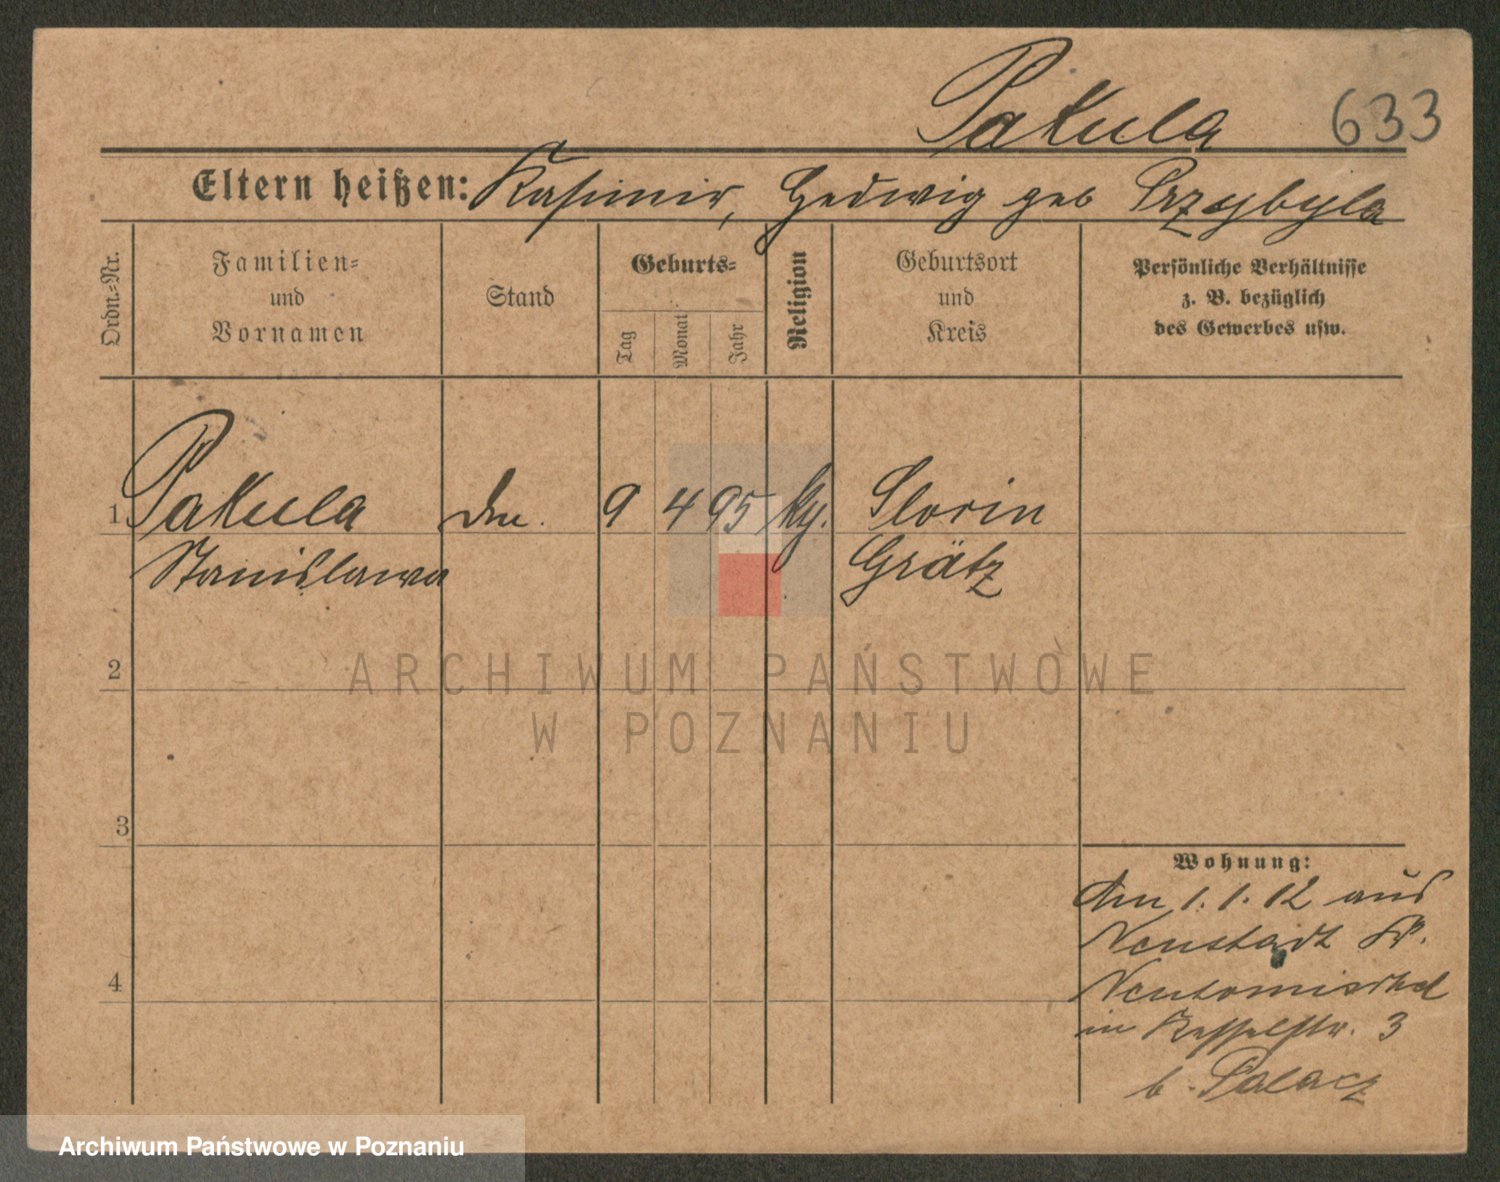 Pakula 633
Eltern heißen: Kasimir, Hedwig geb Przybyla
Ordn.-Nr.
Familien- und Vornamen
Stand
Geburts-
Tag
Monat
Jahr
Religion
Geburtsort und Kreis
Persönliche Verhältnisse
z. B. bezüglich
des Gewerbes usw.
1 Pakula 9 4 95 Slorin
Stanislawa Grätz
2
ARCHIWUM PAŃSTWOWE
W POZNANIU
3
Wohnung:
Am 1.1.12 aus
Neustadt Kr.
4
Neutomischel
in Kesselstr. 3
b. Palacz
Archiwum Państwowe w Poznaniu